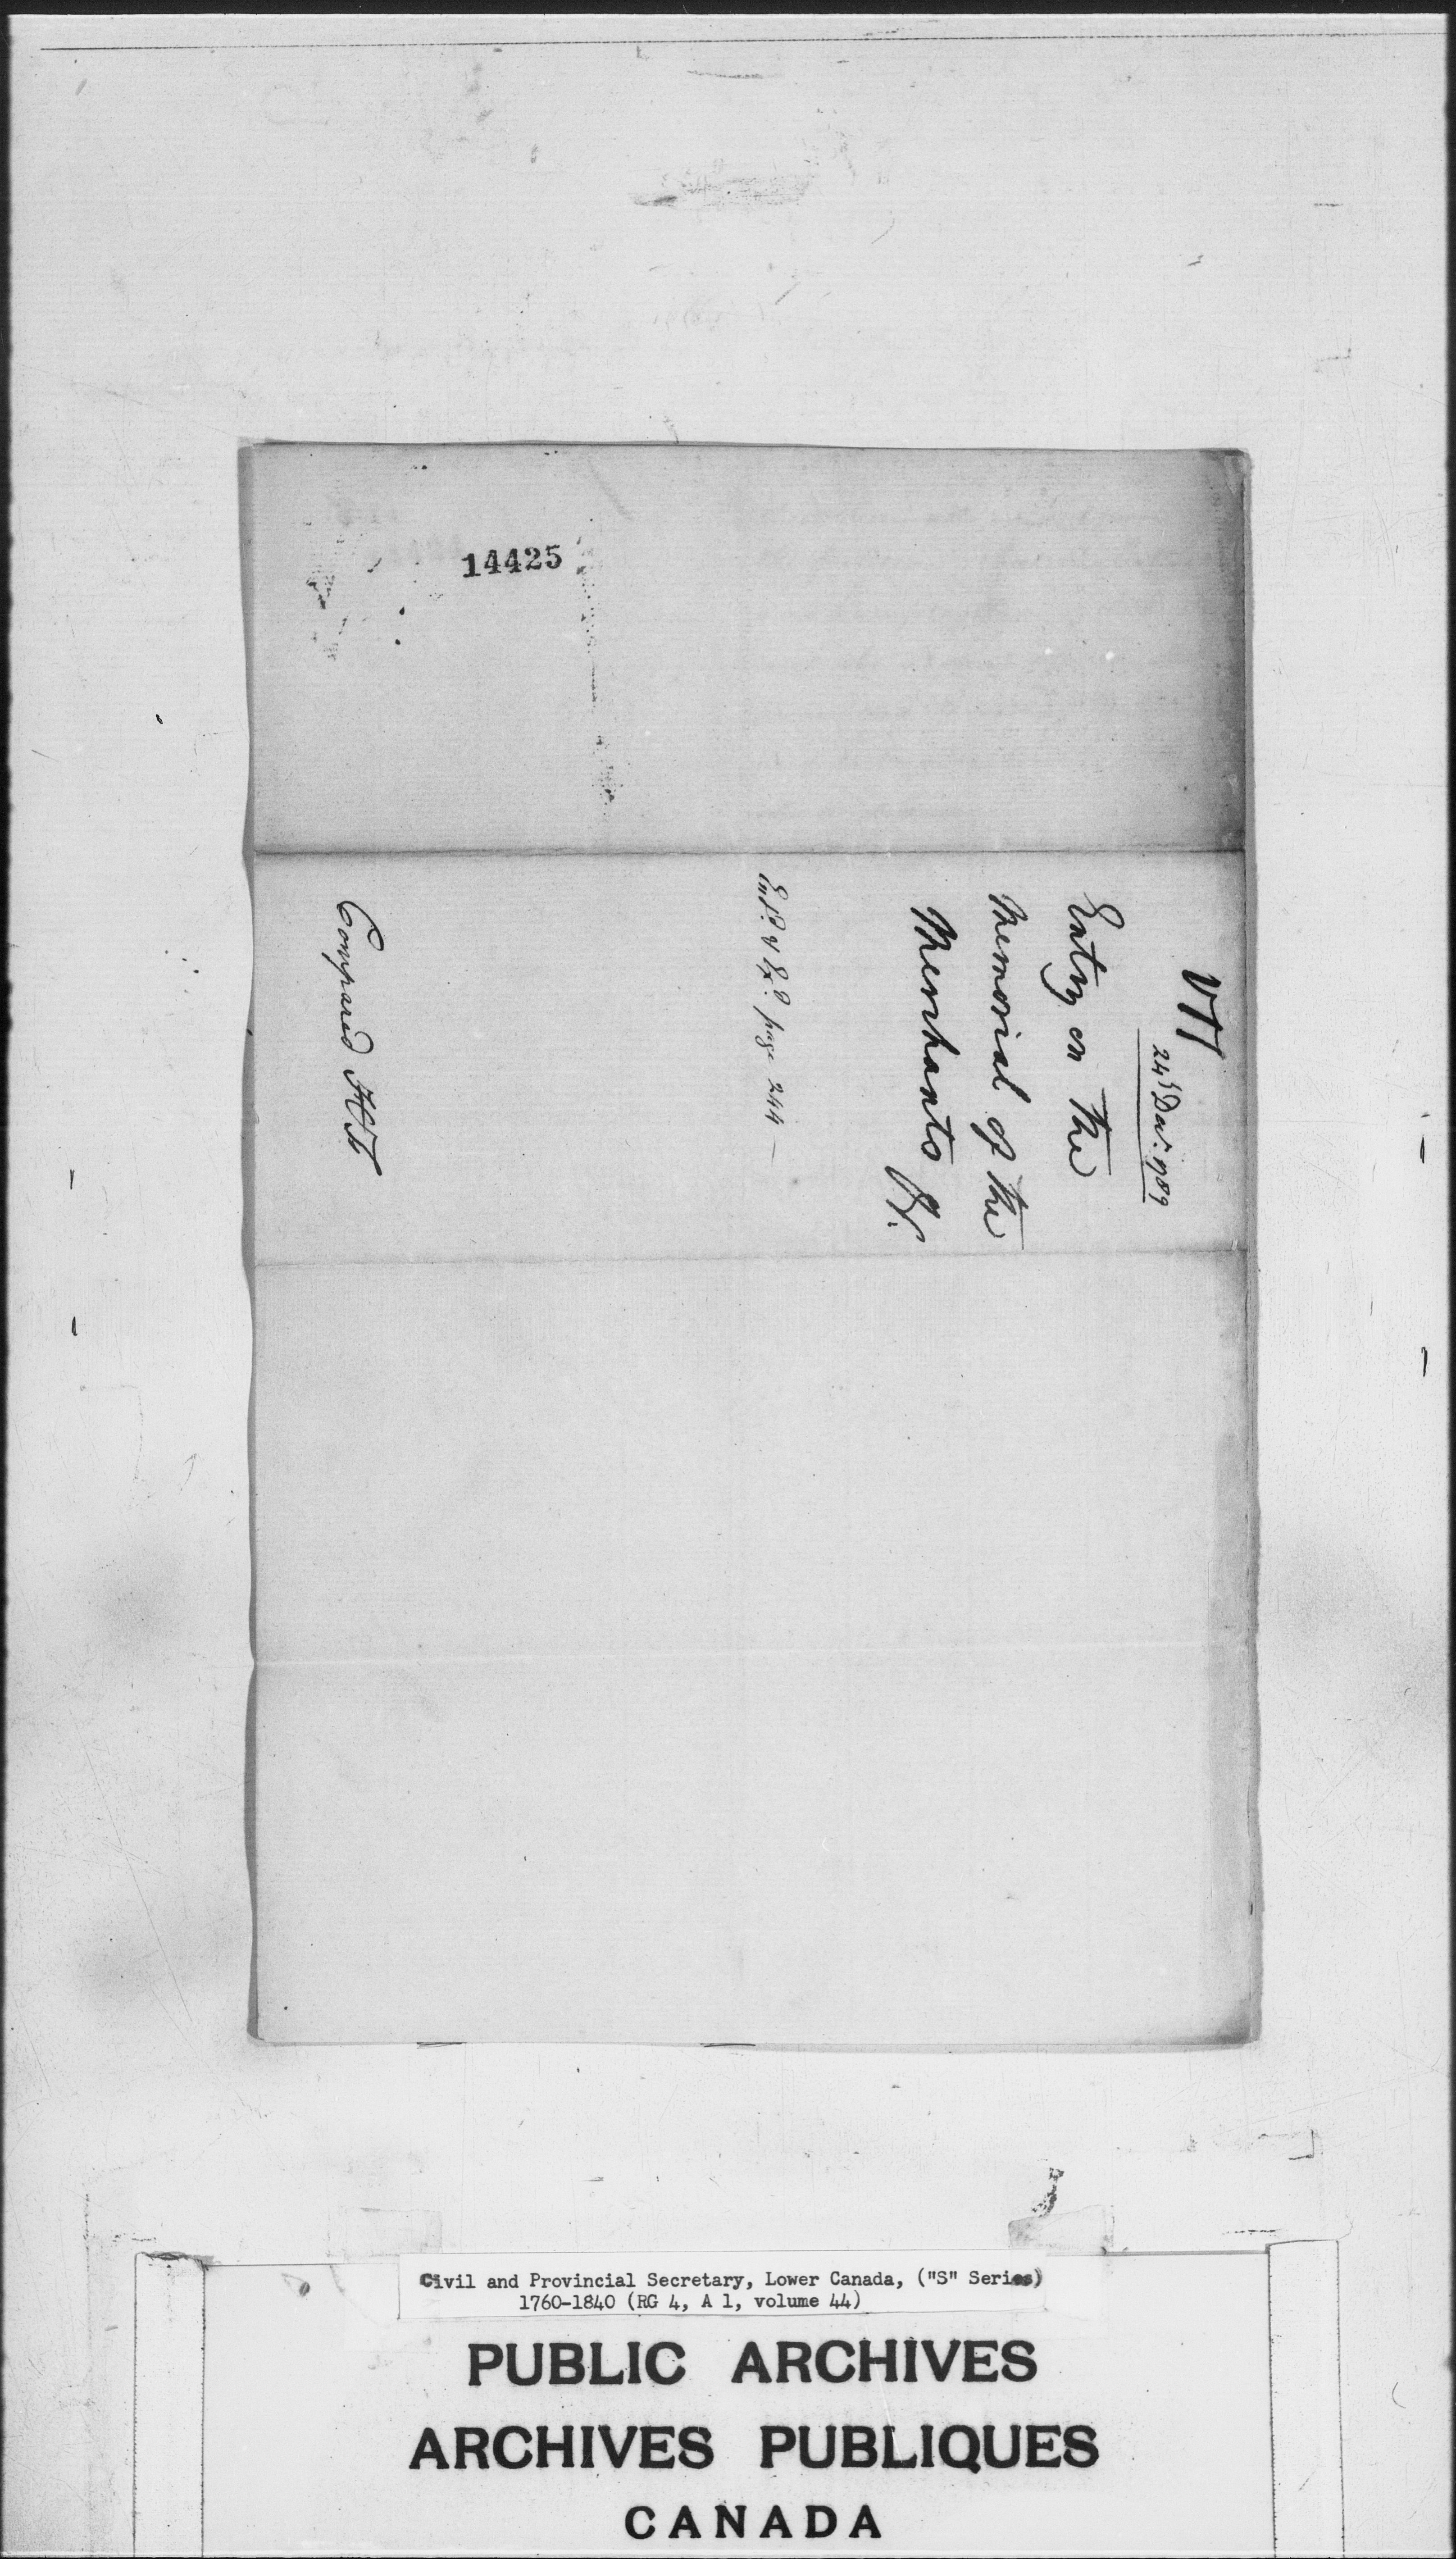 14425
24 Dec. 1789
Entry on the
Memorial of the
Merchants &c.
page 244
Compared
Civil and Provincial Secretary, Lower Canada, ("S" Series)
1760-1840 (RG 4, A 1, volume 44)
PUBLIC ARCHIVES
ARCHIVES PUBLIQUES
CANADA